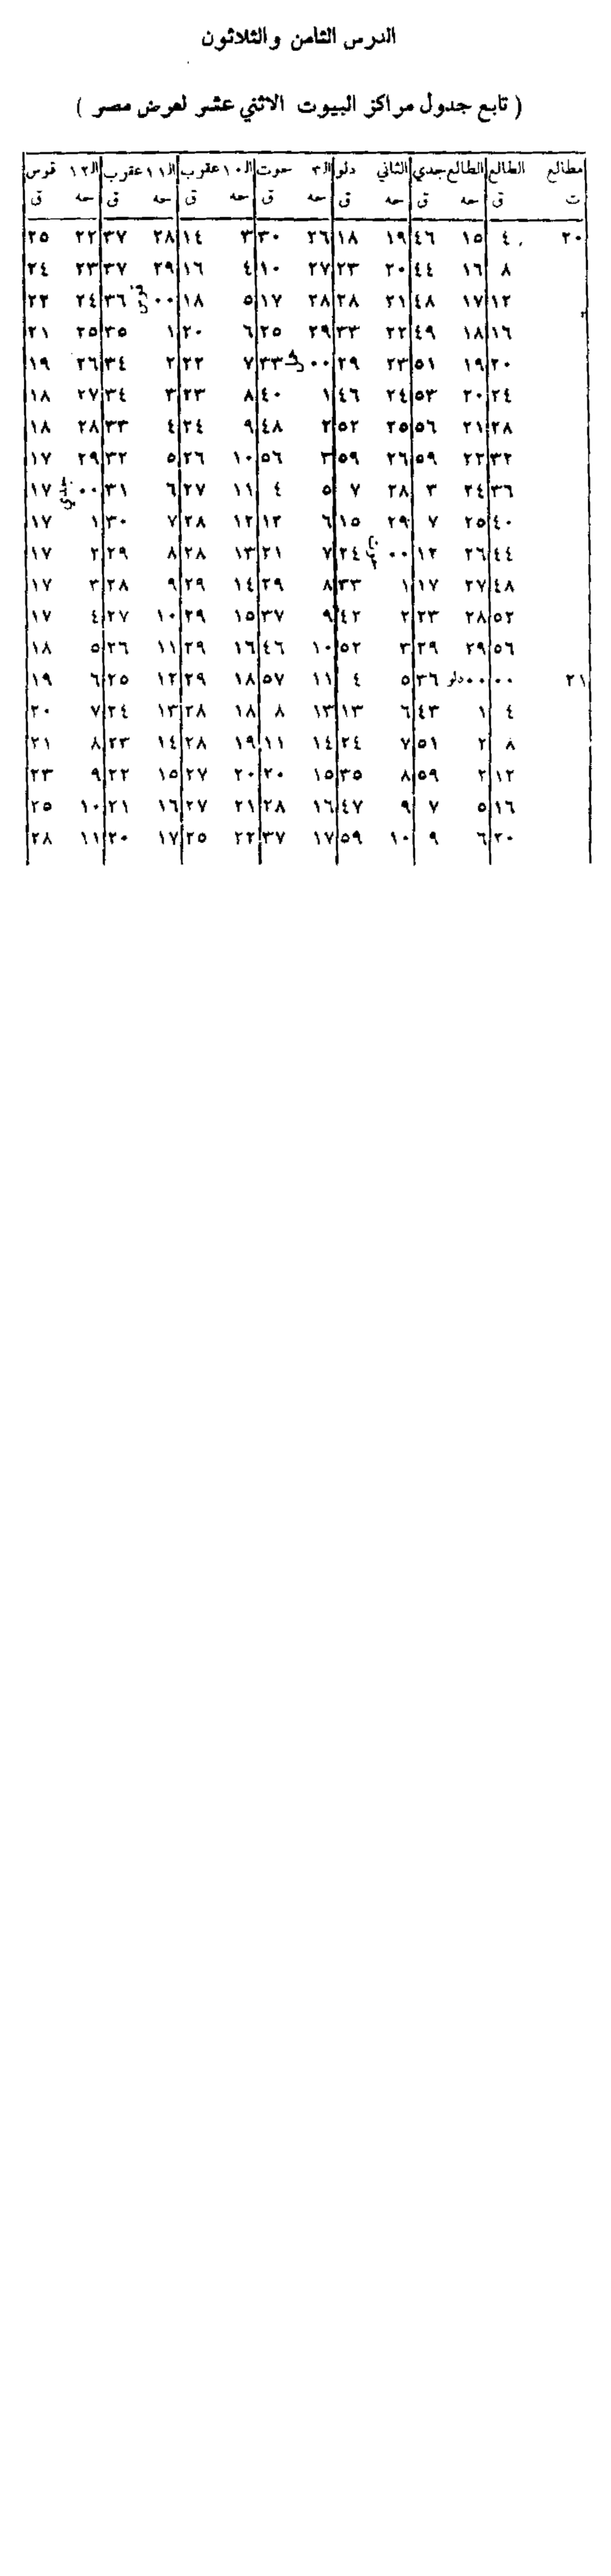 الدرس الثامن والثلاثون
( تابع جدول مراكز البيوت الاثني عشر لعرض مصر )
مطالع الطالع الطالع جدي الثاني دلو ال٣ حوت ال١٠ عقرب ال١١ عقرب ال١٢ قوس
ت ق حه ق حه ق حه ق حه ق حه ق حه ق
٢٠ ٤ ١٥ ٤٦ ١٩ ١٨ ٢٦ ٣٠ ٣ ١٤ ٢٨ ٣٧ ٢٢ ٢٥
٨ ١٦ ٤٤ ٢٠ ٢٣ ٢٧ ١٠ ٤ ١٦ ٢٩ ٣٧ ٢٣ ٢٤
١٢ ١٧ ٤٨ ٢١ ٢٨ ٢٨ ١٧ ٥ ١٨ ٠٠ ٣٦ ٢٤ ٢٢
١٦ ١٨ ٤٩ ٢٢ ٣٣ ٢٩ ٢٥ ٦ ٢٠ ١ ٣٥ ٢٥ ٢١
٢٠ ١٩ ٥١ ٢٣ ٢٩ ٠٠ ٣٣ ٧ ٢٢ ٢ ٣٤ ٢٦ ١٩
٢٤ ٢٠ ٥٣ ٢٤ ٤٦ ١ ٤٠ ٨ ٢٣ ٣ ٣٤ ٢٧ ١٨
٢٨ ٢١ ٥٦ ٢٥ ٥٢ ٢ ٤٨ ٩ ٢٤ ٤ ٣٣ ٢٨ ١٨
٣٢ ٢٢ ٥٩ ٢٦ ٥٩ ٣ ٥٦ ١٠ ٢٦ ٥ ٣٢ ٢٩ ١٧
٣٦ ٢٤ ٣ ٢٨ ٧ ٥ ٤ ١١ ٢٧ ٦ ٣١ ٠٠ جدي ١٧
٤٠ ٢٥ ٧ ٢٩ ١٥ ٦ ١٢ ١٢ ٢٨ ٧ ٣٠ ١ ١٧
٤٤ ٢٦ ١٢ ٠٠ حوت ٢٤ ٧ ٢١ ١٣ ٢٨ ٨ ٢٩ ٢ ١٧
٤٨ ٢٧ ١٧ ١ ٣٣ ٨ ٢٩ ١٤ ٢٩ ٩ ٢٨ ٣ ١٧
٥٢ ٢٨ ٢٣ ٢ ٤٢ ٩ ٣٧ ١٥ ٢٩ ١٠ ٢٧ ٤ ١٧
٥٦ ٢٩ ٢٩ ٣ ٥٢ ١٠ ٤٦ ١٦ ٢٩ ١١ ٢٦ ٥ ١٨
٢١ ٠٠ ٠٠ دلو ٣٦ ٥ ٤ ١١ ٥٧ ١٨ ٢٩ ١٢ ٢٥ ٦ ١٩
٤ ١ ٤٣ ٦ ١٣ ١٣ ٨ ١٨ ٢٨ ١٣ ٢٤ ٧ ٢٠
٨ ٢ ٥١ ٧ ٢٤ ١٤ ١١ ١٩ ٢٨ ١٤ ٢٣ ٨ ٢١
١٢ ٢ ٥٩ ٨ ٣٥ ١٥ ٢٠ ٢٠ ٢٧ ١٥ ٢٢ ٩ ٢٣
١٦ ٥ ٧ ٩ ٤٧ ١٦ ٢٨ ٢١ ٢٧ ١٦ ٢١ ١٠ ٢٥
٢٠ ٦ ٩ ١٠ ٥٩ ١٧ ٣٧ ٢٢ ٢٥ ١٧ ٢٠ ١١ ٢٨